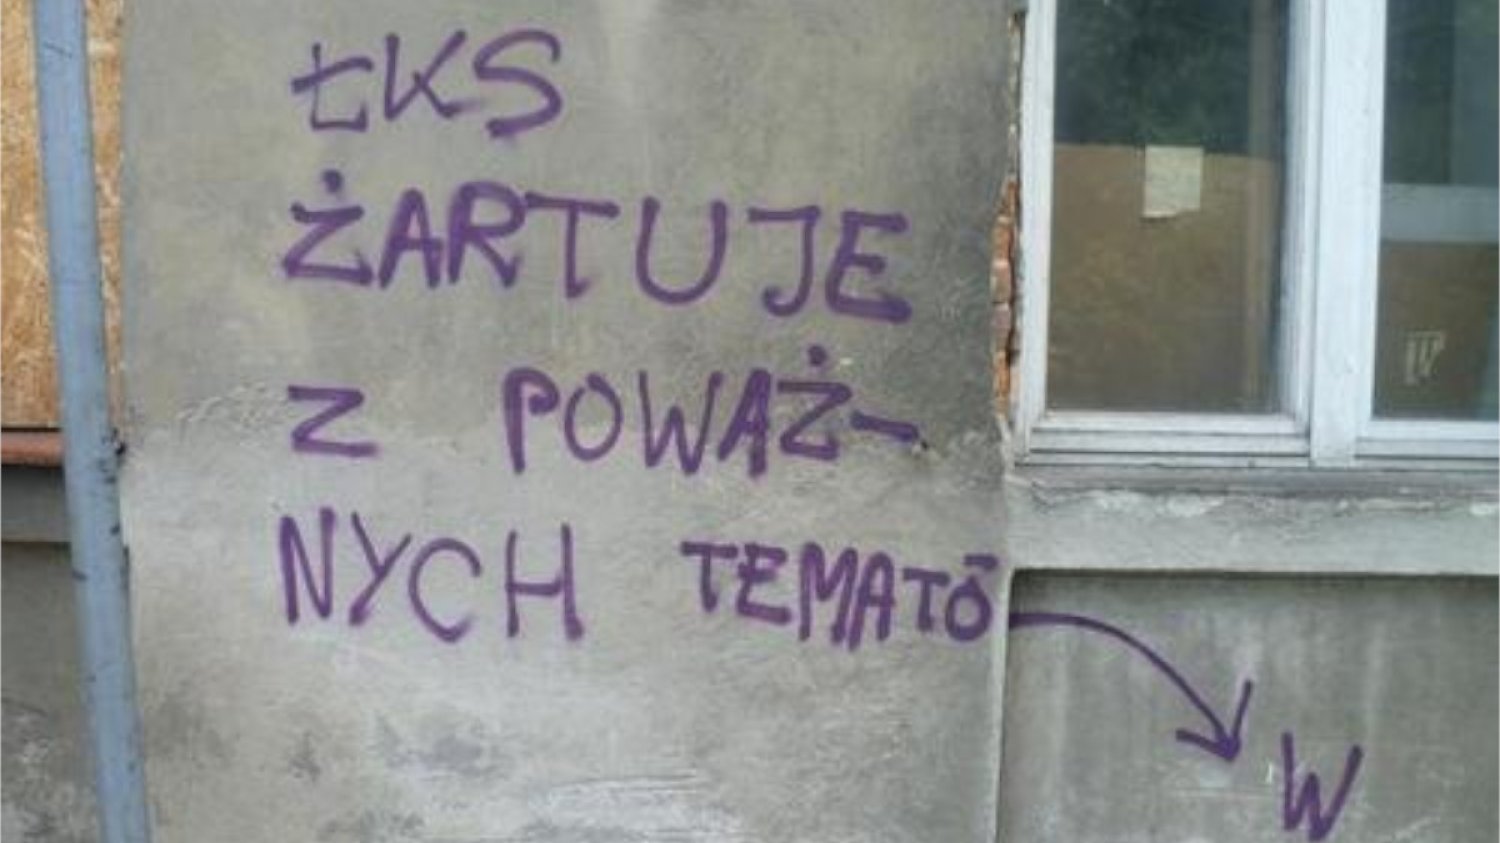 ŁKS
ŻARTUJE
Z POWAŻ-
NYCH TEMATÓ
W